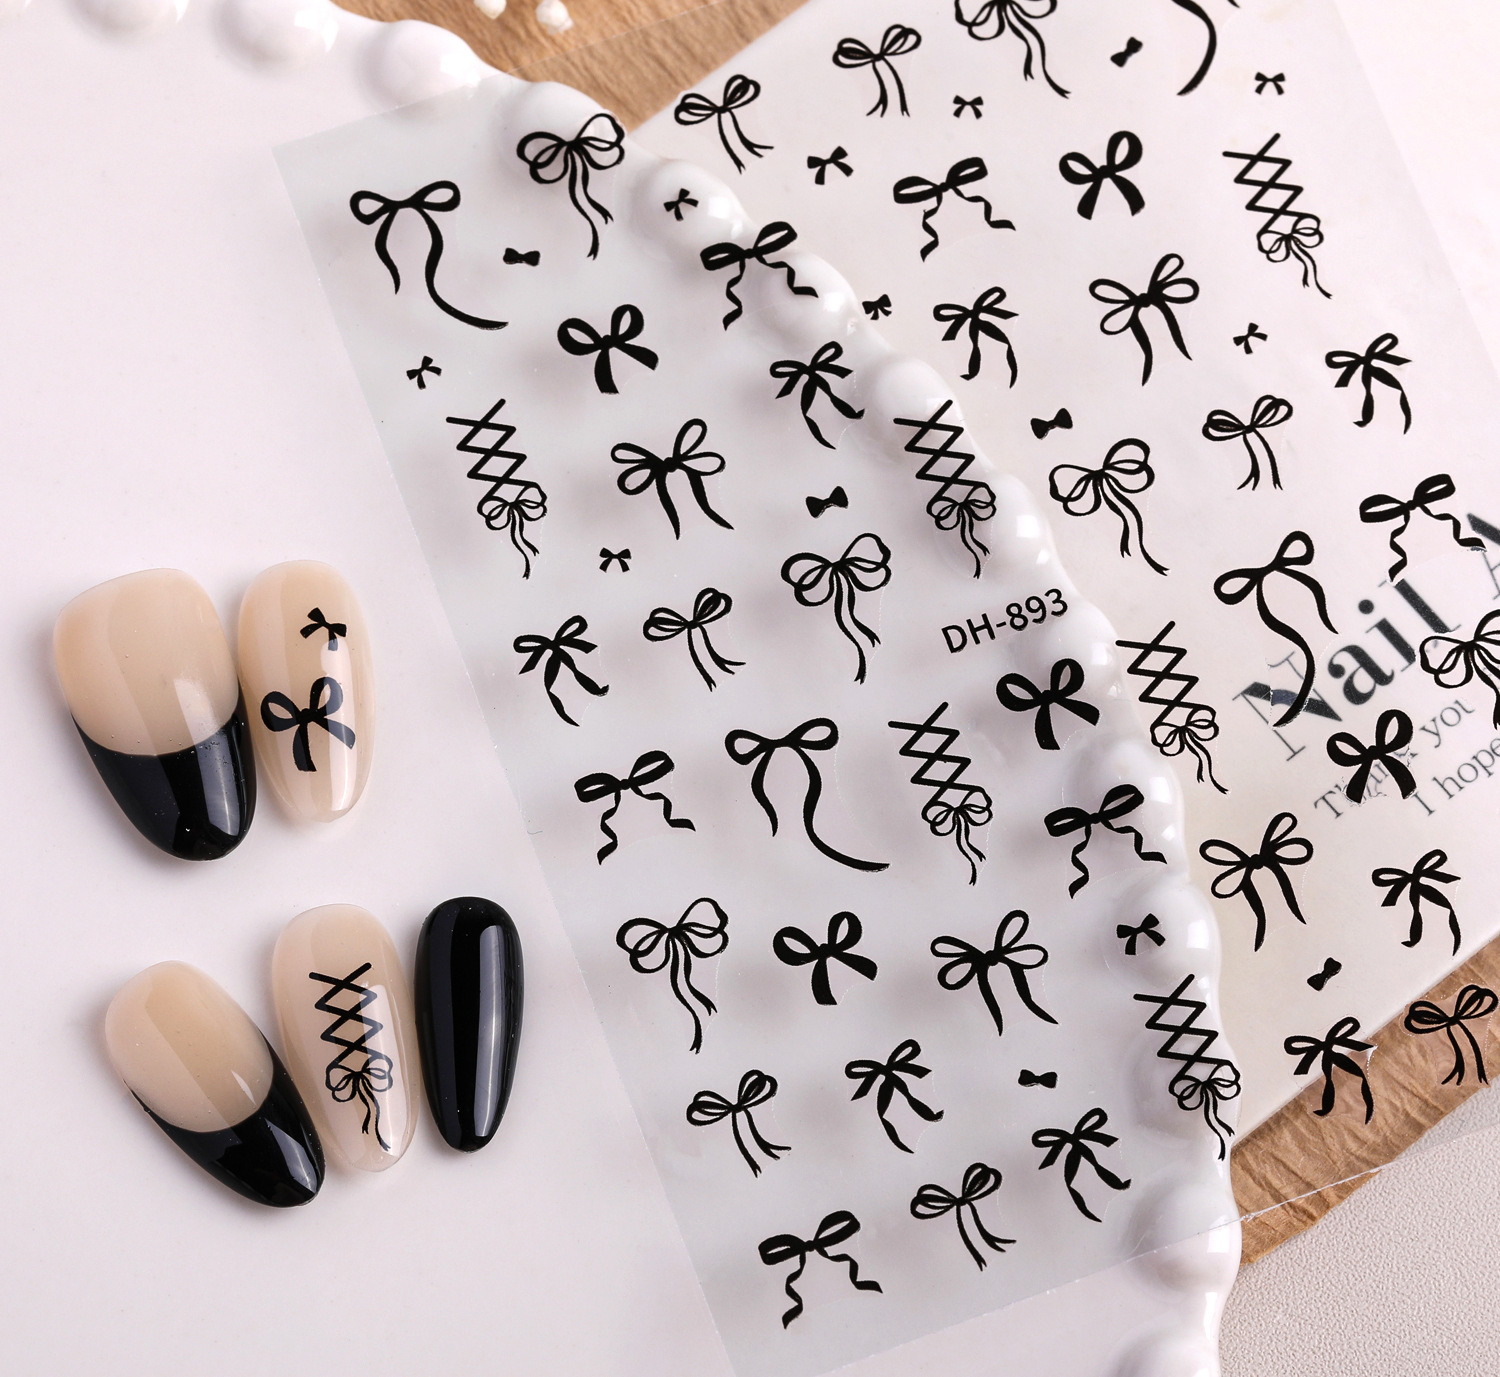 DH-893
Nail A
Thank you
I hope